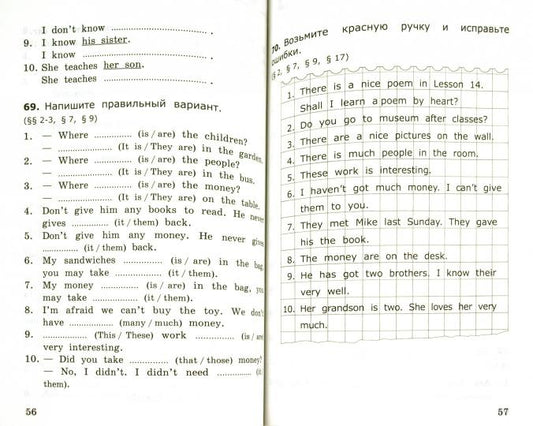 I don't know ................ .
9. I know his sister.
I know ................ .
10. She teaches her son.
She teaches ................ .
69. Напишите правильный вариант.
(§§ 2-3, § 7, § 9)
1. — Where ............ (is / are) the children?
— ............ (It is / They are) in the garden.
2. — Where ............ (is / are) the people?
— ............ (It is / They are) in the bus.
3. — Where ............ (is / are) the money?
— ............ (It is / They are) on the table.
4. Don't give him any books to read. He never
gives ............ (it / them) back.
5. Don't give him any money. He never gives
............ (it / them) back.
6. My sandwiches ............ (is / are) in the bag,
you may take ............ (it / them).
7. My money ............ (is / are) in the bag, you
may take ............ (it / them).
8. I'm afraid we can't buy the toy. We don't
have ............ (many / much) money.
9. ............ (This / These) work ............ (is / are)
very interesting.
10. — Did you take ............ (that / those) money?
— No, I didn't. I didn't need ............ (it /
them).
56
70. Возьмите красную ручку и исправьте
ошибки.
(§ 2, § 7, § 9, § 17)
1. There is a nice poem in Lesson 14.
Shall I learn a poem by heart?
2. Do you go to museum after classes?
3. There are a nice pictures on the wall.
4. There is much people in the room.
5. These work is interesting.
6. I haven't got much money. I can't give
them to you.
7. They met Mike last Sunday. They gave
his the book.
8. The money are on the desk.
9. He has got two brothers. I know their
very well.
10. Her grandson is two. She loves her very
much.
57